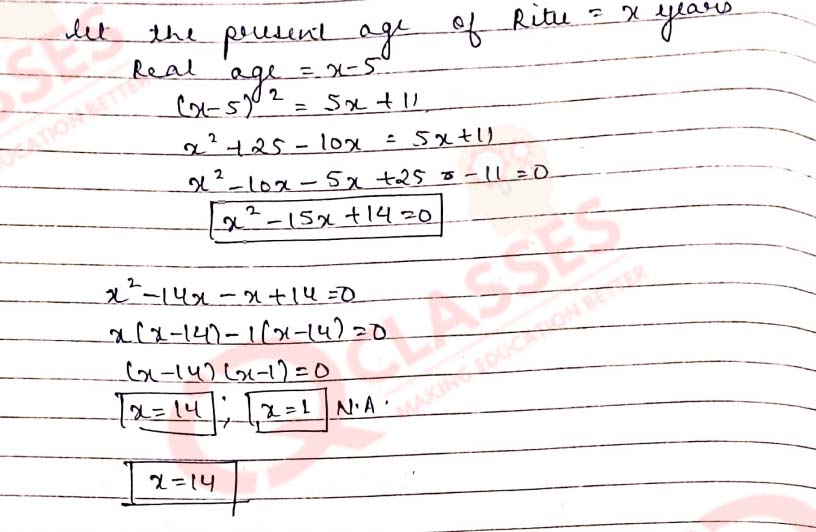 let the present age of Ritu = x years
Real age = x-5
(x-5)² = 5x+11
x²+25-10x = 5x+11
x²-10x-5x+25-11=0
x²-15x+14=0
x²-14x-x+14=0
x(x-14)-1(x-14)=0
(x-14)(x-1)=0
x=14 ; x=1 N.A.
x=14
CLASSES
MAKING EDUCATION BETTER